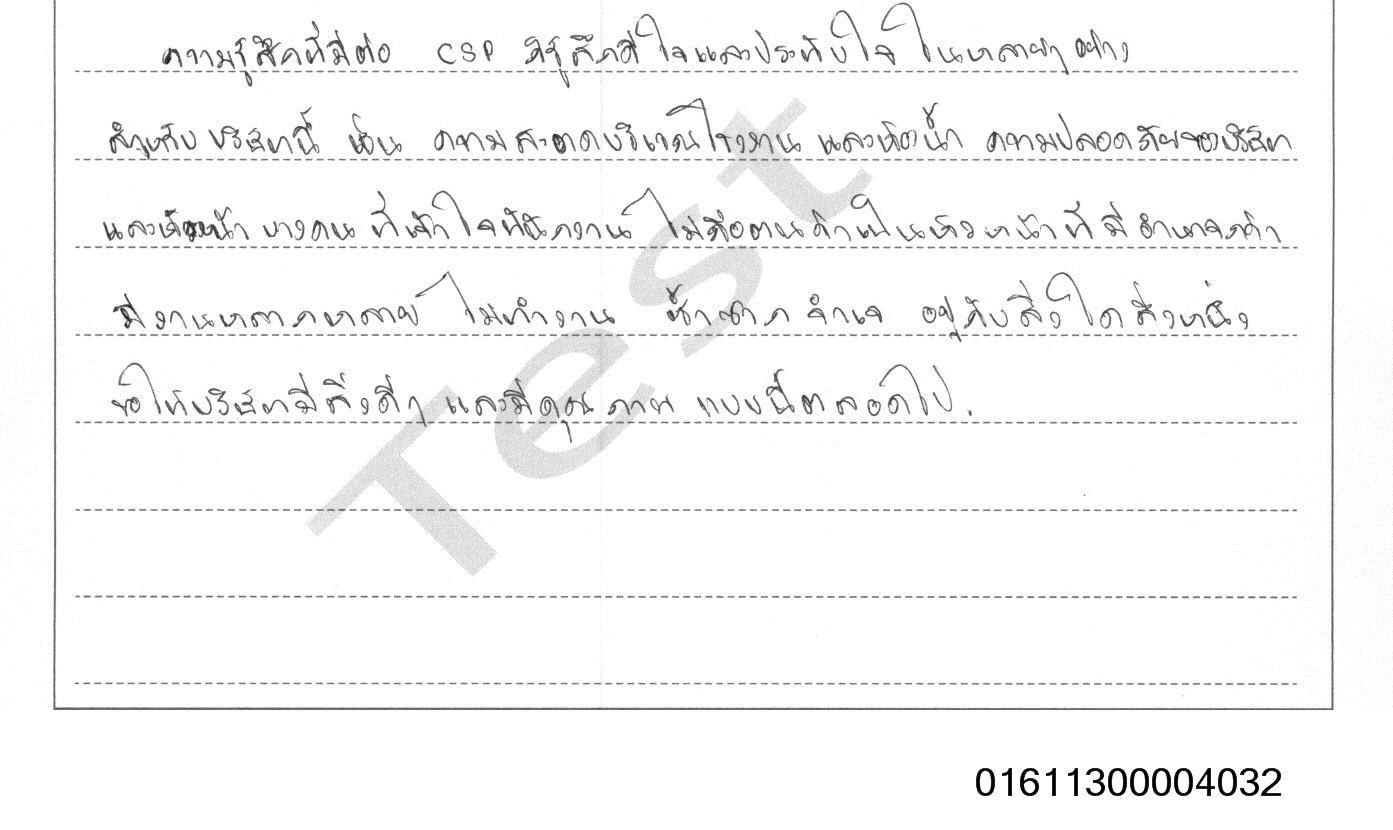 ความรู้สึกที่มีต่อ CSP ก็รู้สึกดีใจและประทับใจ ในหลายๆ อย่าง
สำหรับ บริษัทนี้ เช่น ความสะอาดบริเวณโรงงาน และห้องน้ำ ความปลอดภัยของบริษัท
และหัวหน้า บางคน ที่เข้าใจพนักงาน ไม่ถือตนว่าเป็นหัวหน้าที่มีอำนาจกว่า
มีงานหลากหลาย ไม่ทำงาน ซ้ำซาก จำเจ อยู่กับสิ่งใดสิ่งหนึ่ง
ขอให้บริษัทมีสิ่งดีๆ และมีคุณภาพ แบบนี้ตลอดไป.
Test
01611300004032